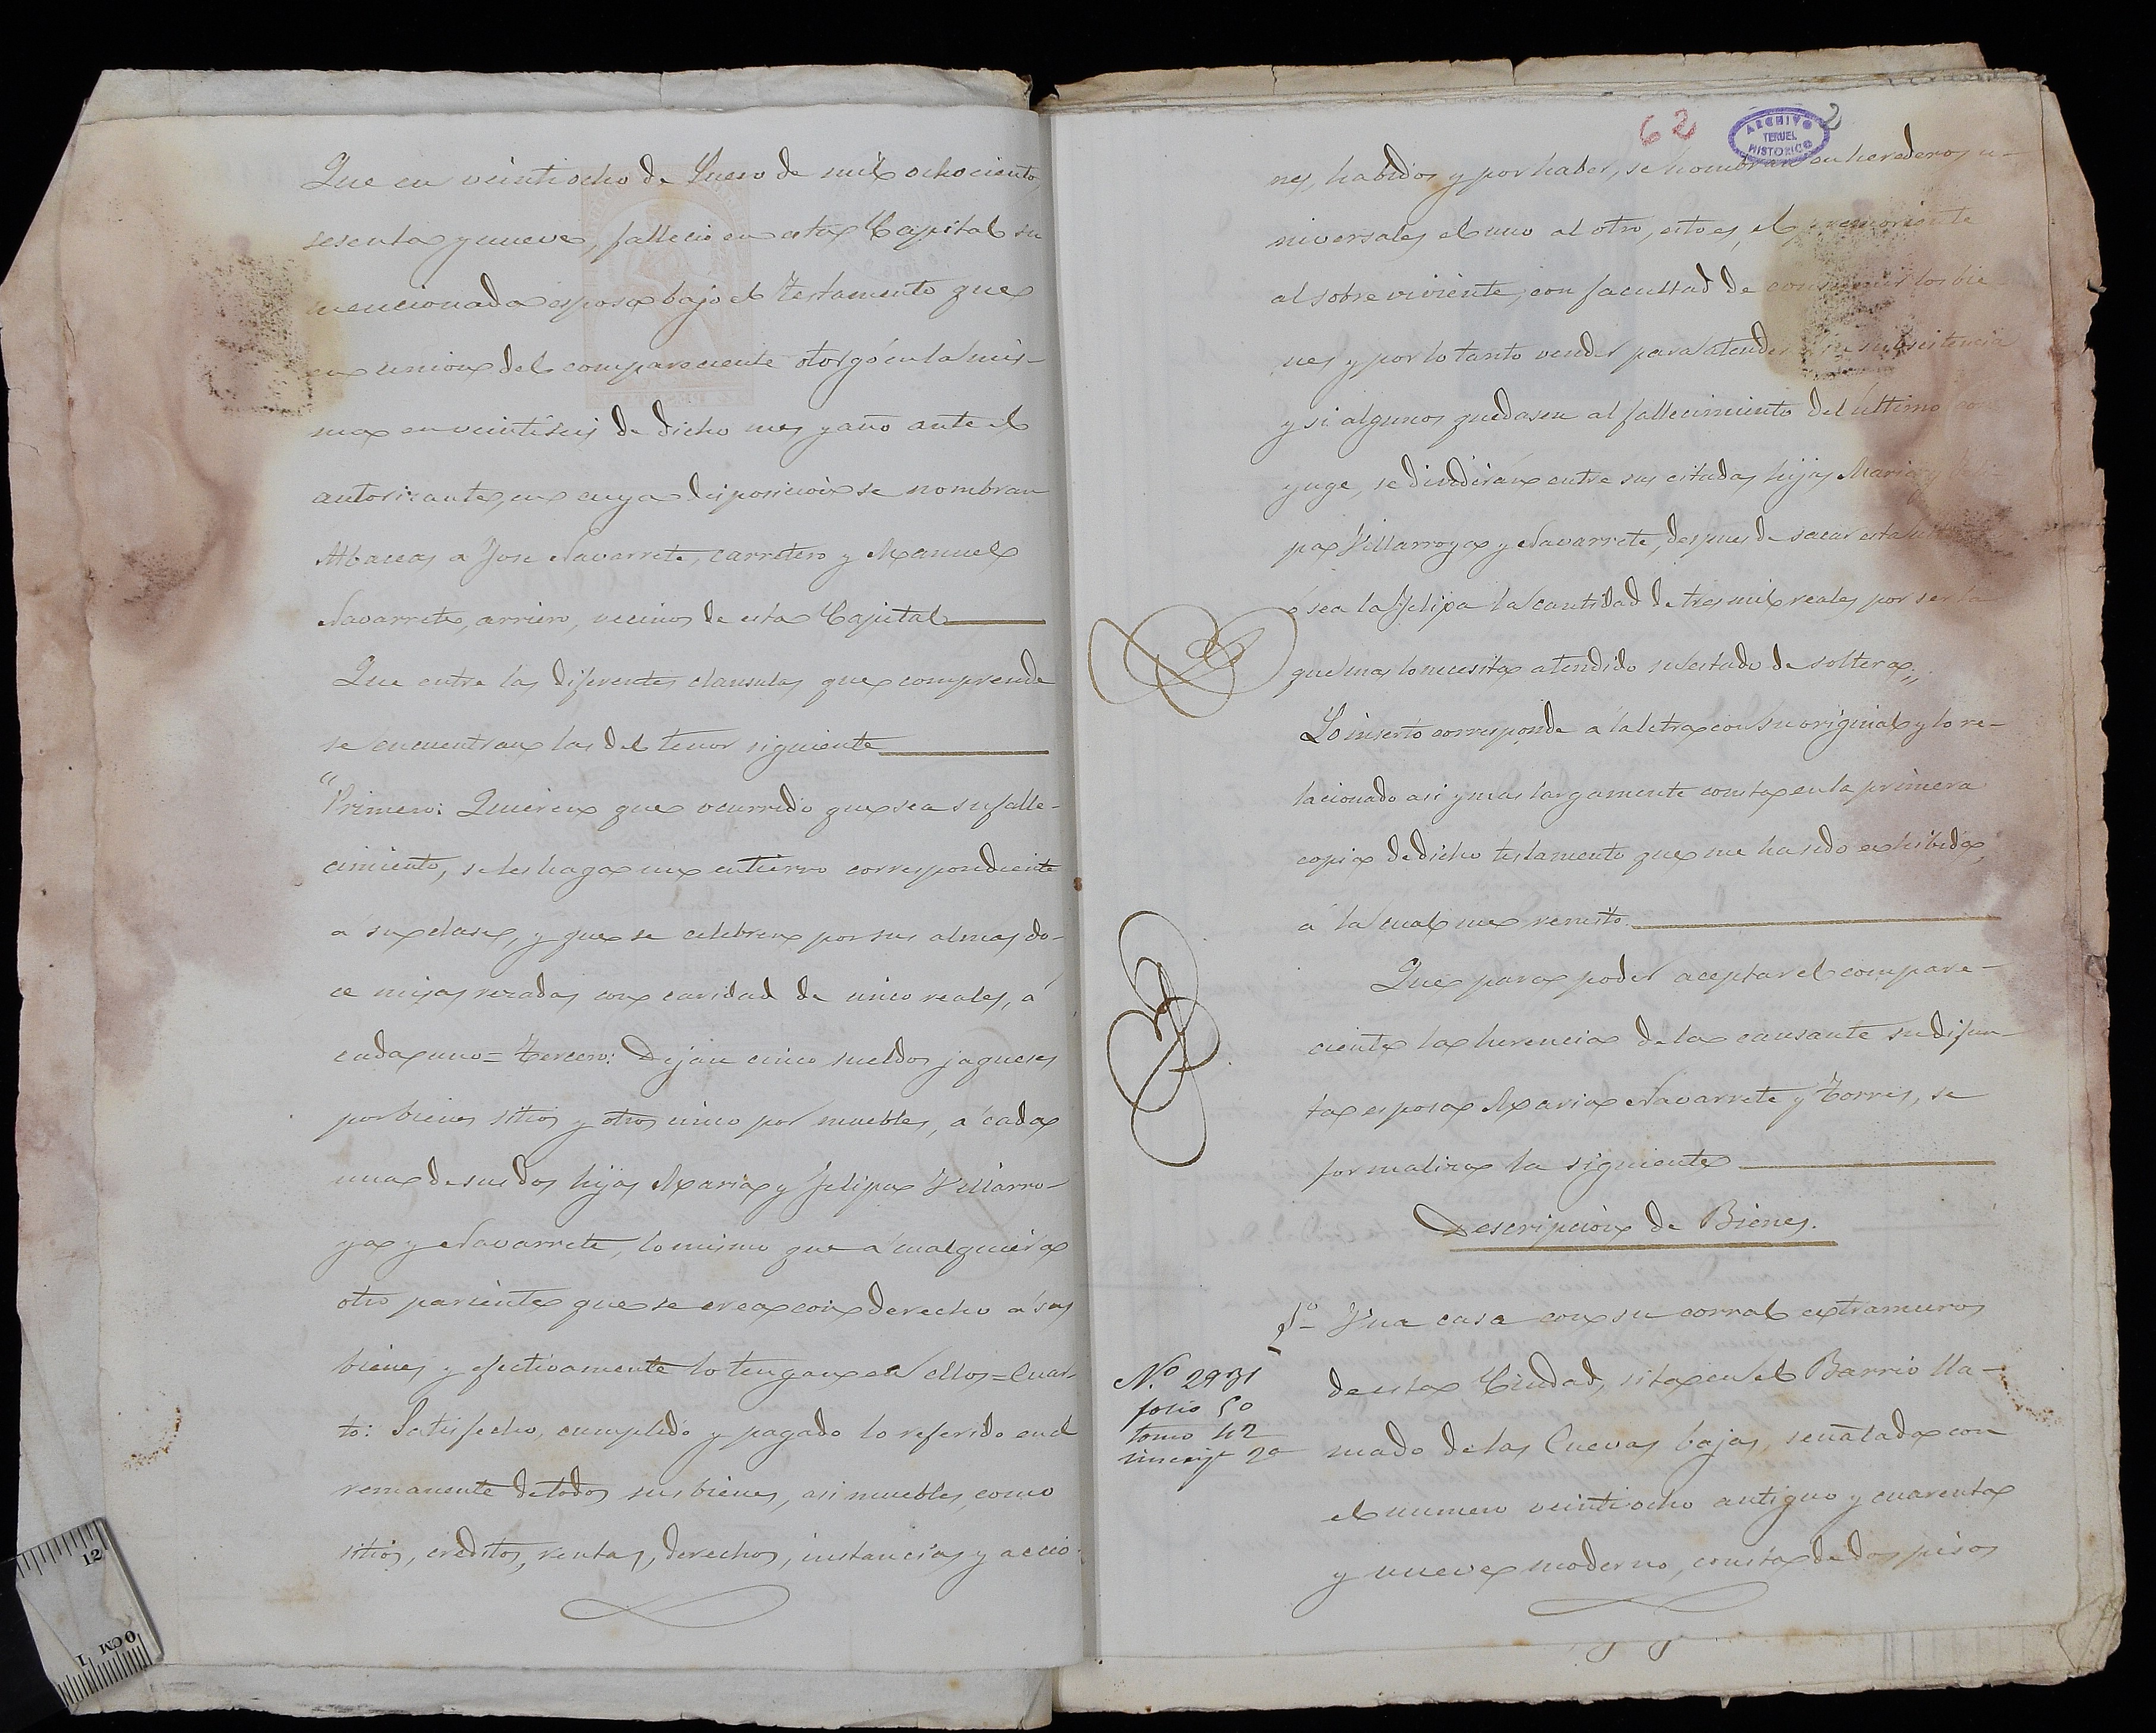 Que en veintiocho de Enero de mil ochocientos
sesenta y nueve, fallecio en esta Capital su
mencionada esposa bajo el testamento que
en union del compareciente otorgó en la mis-
ma en veintiseis de dicho mes y año ante el
autorizante, en cuya disposicion se nombran
Albaceas a Jose Navarrete, carretero y Manuel
Navarrete, arriero, vecinos de esta Capital
Que entre las diferentes clausulas que comprende
se encuentran las del tenor siguiente
"Primero: Quieren que ocurrido que sea su falle-
cimiento, se les haga un entierro correspondiente
á su clase, y que se celebren por sus almas do-
ce misas rezadas con caridad de cinco reales, á
cada uno = Tercero: Dejan cinco sueldos jaqueses
por bienes sitios y otros cinco por muebles, á cada
una de sus dos hijas Maria y Felipa Villarro-
ya y Navarrete, lo mismo que á cualquiera
otro pariente que se crea con derecho a sus
bienes y efectivamente lo tengan en ellos = Cuar-
to: Satisfecho, cumplido y pagado lo referido en el
remanente de todos sus bienes, asi muebles, como
sitios, creditos, rentas, derechos, instancias y accio-
62
2
ARCHIVO
TERUEL
HISTORICO
nes, habidos y por haber, se nombran en herederos u-
niversales el uno al otro, esto es, el premoriente
al sobreviviente, con facultad de consumir los bie-
nes y por lo tanto vender para atender a su subsistencia
y si algunos quedasen al fallecimiento del ultimo con
yuge, se dividiran entre sus citadas hijas Maria y Feli
pa Villarroya y Navarrete, despues de sacar esta
ó sea la Felipa la cantidad de tres mil reales por ser la
que mas lo necesita atendido su estado de soltera,,
Lo inserto corresponde á la letra con su original y lo re-
lacionado asi y mas largamente consta en la primera
copia de dicho testamento que me ha sido exhibida,
á la cual me remito.
Que para poder aceptar el compare-
ciente la herencia de la causante su difun-
ta esposa Maria Navarrete y Torres, se
formaliza la siguiente
Descripcion de Bienes.
1º Una casa con su corral extramuros
de esta Ciudad, sita en el Barrio lla-
mado de las Cuevas bajas, señalada con
el numero veintiocho antiguo y cuarenta
y nueve moderno, consta de dos pisos
N.º 2931
folio 50
tomo 42
inscripn 2ª
12
1
0CM